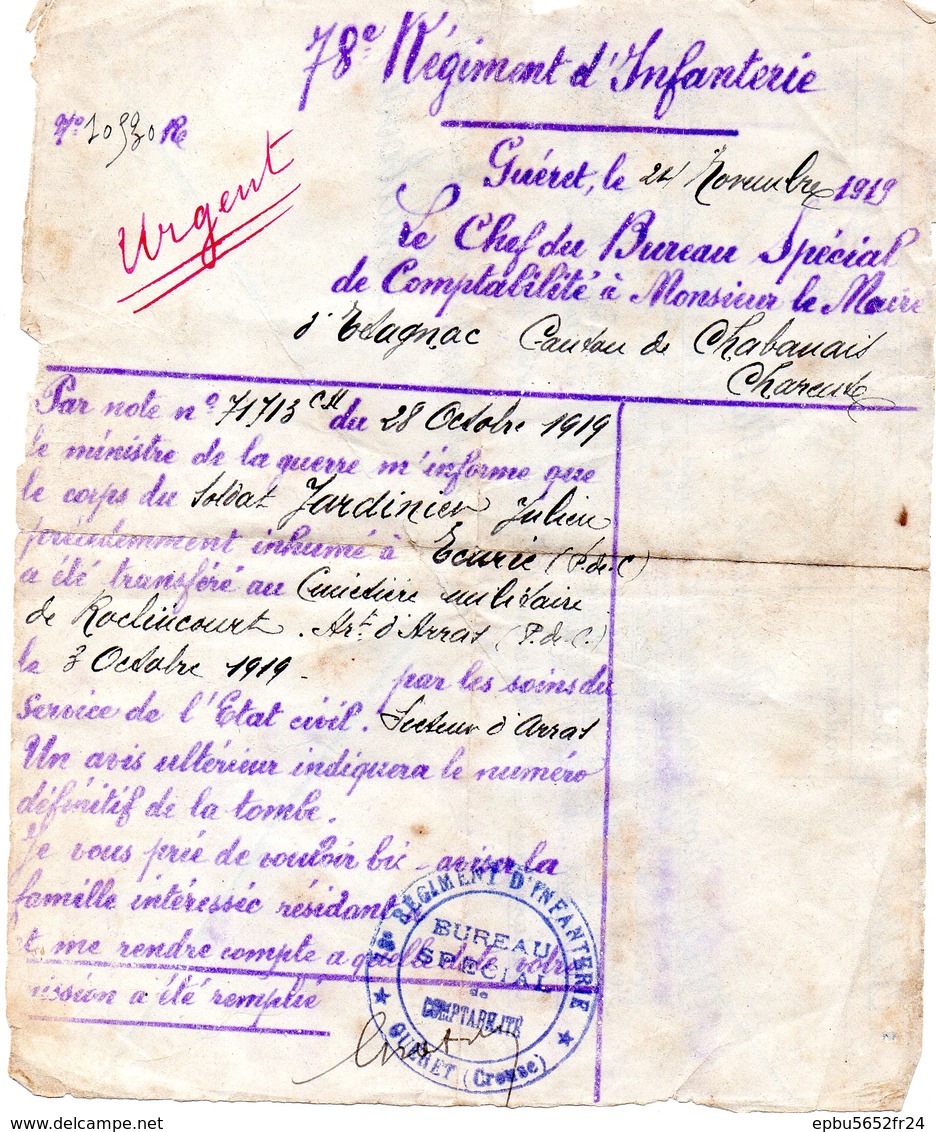 78e Régiment d'Infanterie
No 10530 R
Urgent
Guéret, le 24 Novembre 1919
Le Chef du Bureau Spécial
de Comptabilité à Monsieur le Maire
d'Etagnac Canton de Chabanais
Charente
Par note no 71713 CM du 28 Octobre 1919
le ministre de la guerre m'informe que
le corps du Soldat Jardinier Julien
précédemment inhumé à Ecurie (P.de.C)
a été transféré au Cimetière militaire
de Roclincourt. Art. d'Arras (P.de.C.)
le 3 Octobre 1919 - par les soins du
Service de l'Etat civil. Secteur d'Arras
Un avis ultérieur indiquera le numéro
définitif de la tombe.
Je vous prie de vouloir bi- aviser la
famille intéressée résidant
et me rendre compte a quelle date votre
mission a été remplie
78e RÉGIMENT D'INFANTERIE
BUREAU
SPECIAL
de
COMPTABILITÉ
★ GUÉRET (Creuse) ★
delcampe.net
epbu5652fr24